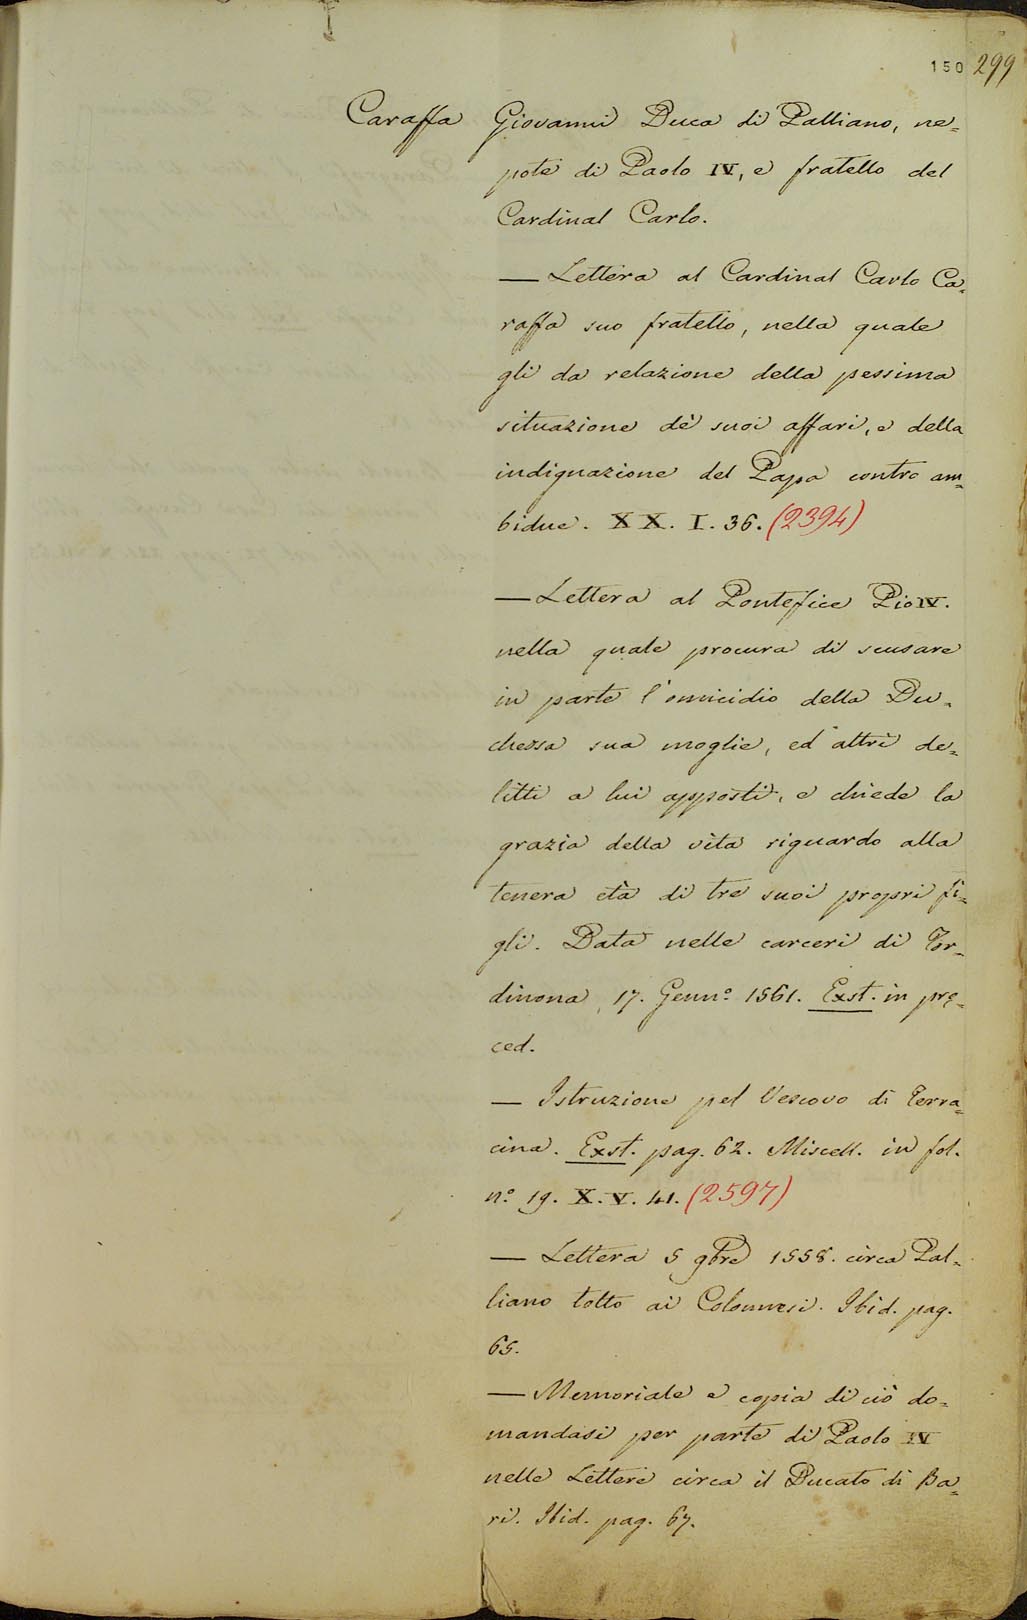 150 299
Caraffa Giovanni Duca di Palliano, ne=
pote di Paolo IV, e fratello del
Cardinal Carlo.
— Lettera al Cardinal Carlo Ca=
raffa suo fratello, nella quale
gli da relazione della pessima
situazione de' suoi affari, e della
indignazione del Papa contro am=
bidue. XX. I. 36. (2394)
— Lettera al Pontefice Pio IV.
nella quale procura di scusare
in parte l'omicidio della Du=
chessa sua moglie, ed altri de=
litti a lui apposti, e chiede la
grazia della vita riguardo alla
tenera età di tre suoi propri fi=
gli. Data nelle carceri di Tor=
dinona, 17. Genn.º 1561. Exst. in pre=
ced.
— Istruzione pel Vescovo di Terra=
cina. Exst. pag. 62. Miscell. in fol.
nº 19. X. V. 41. (2597)
— Lettera 5 9bre 1558. circa Pal=
liano tolto ai Colonnesi. Ibid. pag.
65.
— Memoriale e copia di ciò do=
mandasi per parte di Paolo IV
nelle Lettere circa il Ducato di Ba=
ri. Ibid. pag. 67.